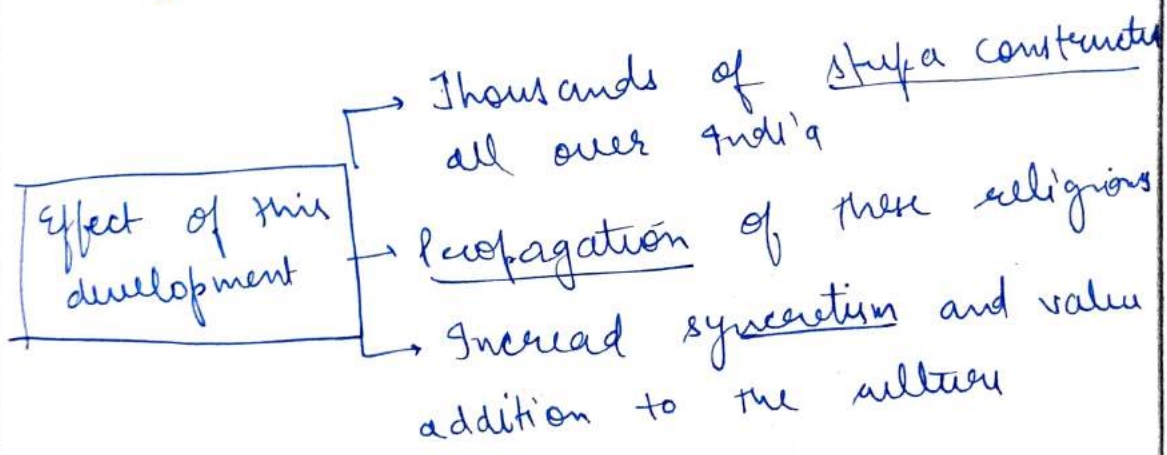 Effect of this
development
Thousands of stupa constructe
all over India
Propagation of these religions
Incread syncretism and value
addition to the culture